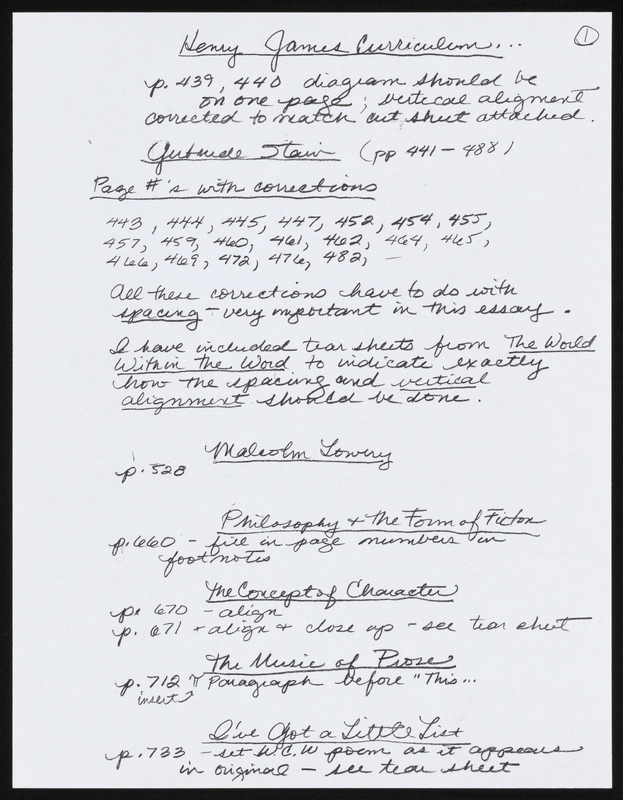 1
Henry James Curriculum...
p. 439, 440 diagram should be
on one page; vertical aligment
corrected to match cut sheet attached.
Gertrude Stein (pp 441 - 488)
Page #'s with corrections
443, 444, 445, 447, 452, 454, 455,
457, 459, 460, 461, 462, 464, 465,
466, 469, 472, 476, 482, —
All these corrections have to do with
spacing - very important in this essay.
I have included tear sheets from The World
Within the Word to indicate exactly
how the spacing and vertical
alignment should be done.
Malcolm Lowry
p. 528
Philosophy + the Form of Fiction
p. 660 - fill in page numbers in
footnotes
The Concept of Character
p. 670 - align
p. 671 - align + close up - see tear sheet
The Music of Prose
p. 712 ¶ Paragraph before "This...
insert
I've Got a Little List
p. 733 - set W.C.W poem as it appears
in original - see tear sheet